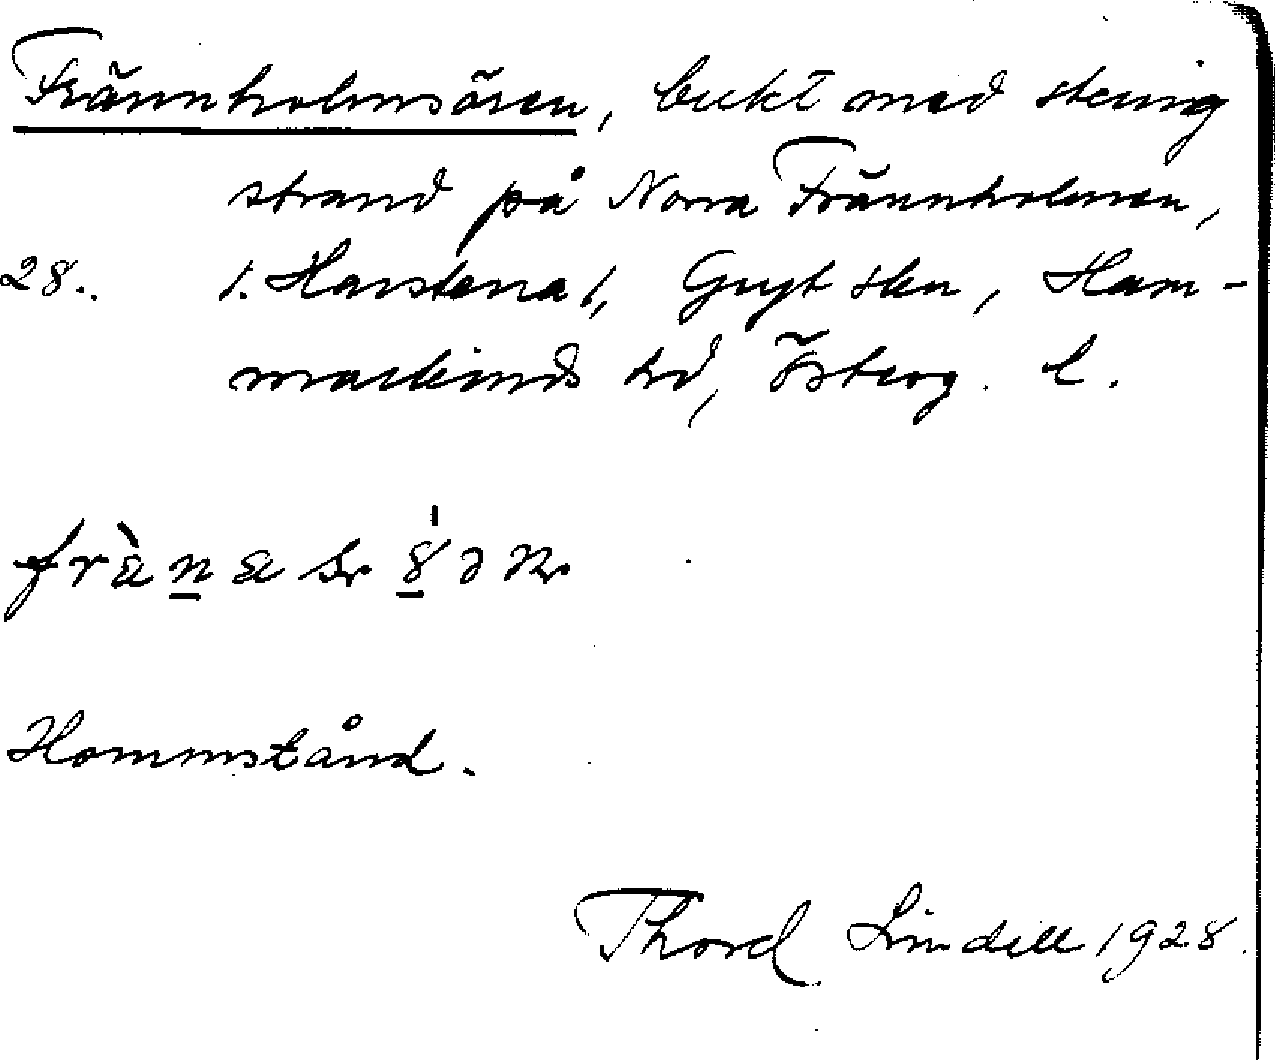 Frännholmsören, bukt med stenig
strand på Norra Frännholmen,
28. 1. Harstena 1, Gryt skn, Ham-
markinds hd, Österg. l.
Hommstånd.
Thord Lindell 1928.